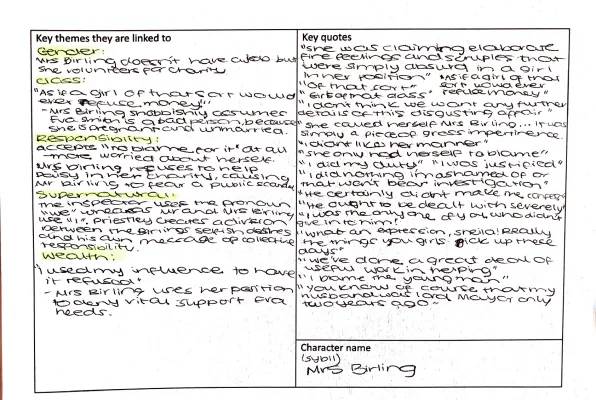 Key themes they are linked to
Gender:
Mrs Birling doesn't have a job but
she volunteers for charity
Class:
"As if a girl of that sort would
ever refuse money"
- Mrs Birling snobbishly assumes
Eva Smith is a bad person, because
she is pregnant and unmarried.
Responsibility:
Accepts "no blame for it" at all
- more worried about herself.
Mrs birling refuses to help
Daisy in her charity, causing
Mr birling to fear a public scandal
Supernatural:
The Inspector uses the pronoun
"we" whereas Mr and Mrs Birling
use "I", Priestley creates a division
between the Birlings selfish desires
and his own message of collective
responsibility.
Wealth:
"I used my influence to have
it refused"
- Mrs Birling uses her position
to deny vital support Eva
needs.
Key quotes
"She was claiming elaborate
fine feelings and scruples that
were simply absurd in a girl
in her position"
"As if a girl of that
sort would ever
refuse money"
"of that sort"
"Girls of that class"
"I don't think we want any further
details of this disgusting affair"
"she called herself Mrs Birling... it was
simply a piece of gross impertinence"
"I didn't like her manner"
"she only had herself to blame"
"I did my duty" "I was justified"
"I did nothing I'm ashamed of or
that won't bear investigation"
"He certainly didn't make me confess
"He ought to be dealt with severely"
"I was the only one of you who didn't
give in to him!
"What an expression, sheila! Really
the things you girls pick up these
days"
"we've done a great deal of
useful work in helping"
"I blame the young man"
"You know of course that my
husband was lord Mayor only
two years ago-
Character name
(sybil)
Mrs Birling